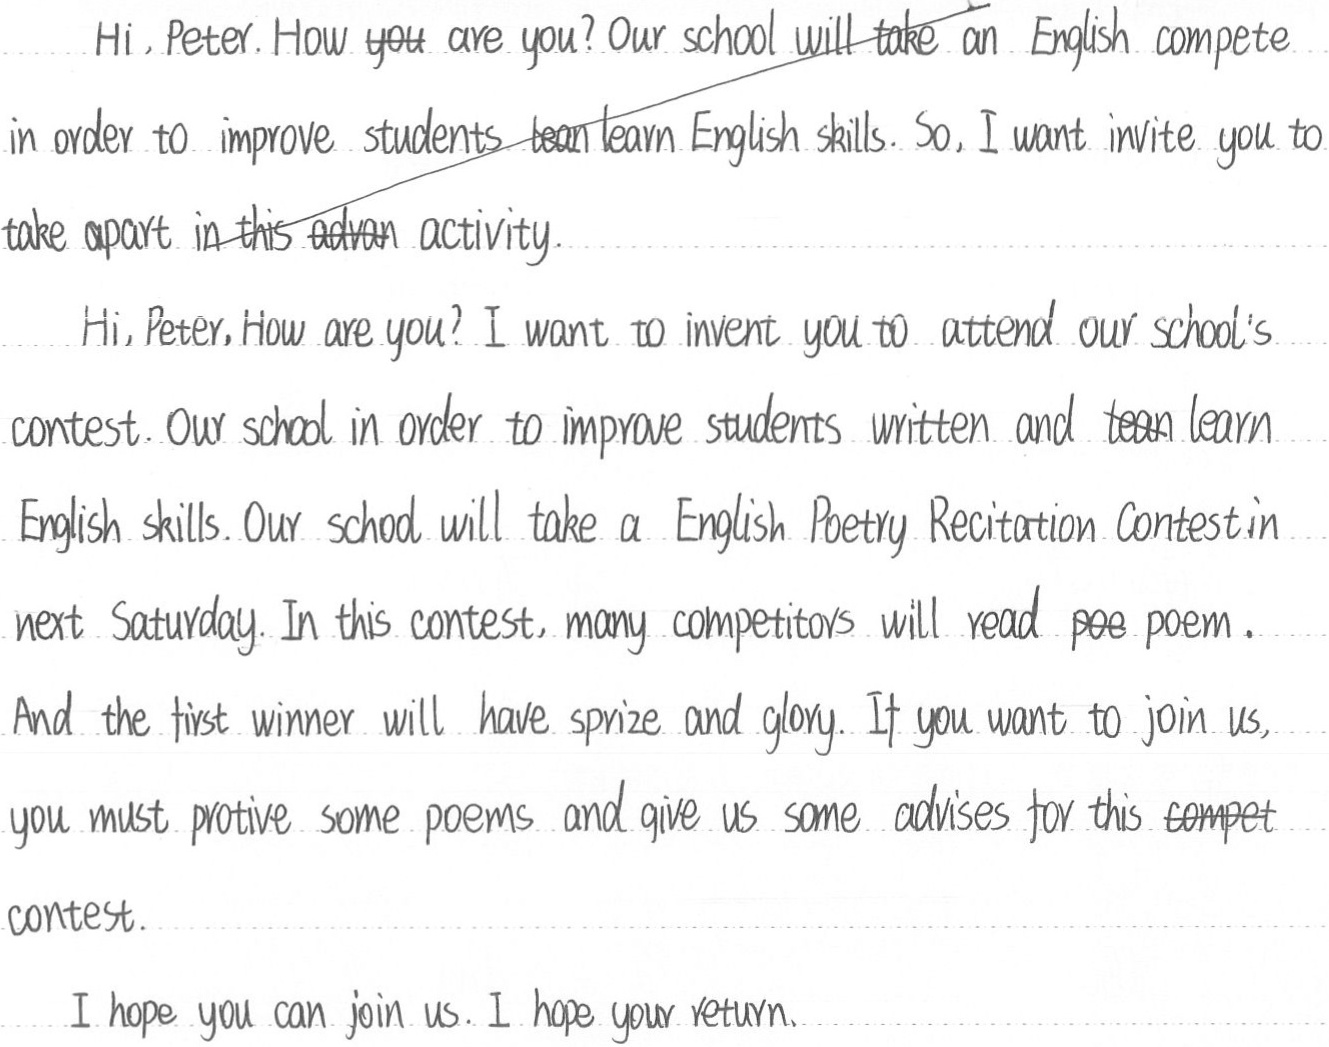 Hi, Peter. How you are you? Our school will take an English compete
in order to improve students tean learn English skills. So, I want invite you to
take apart in this advan activity.
Hi, Peter, How are you? I want to invent you to attend our school's
contest. Our school in order to improve students written and tean learn
English skills. Our school will take a English Poetry Recitation Contest in
next Saturday. In this contest, many competitors will read poe poem.
And the first winner will have sprize and glory. If you want to join us,
you must protive some poems and give us some advises for this compet
contest.
I hope you can join us. I hope your return.